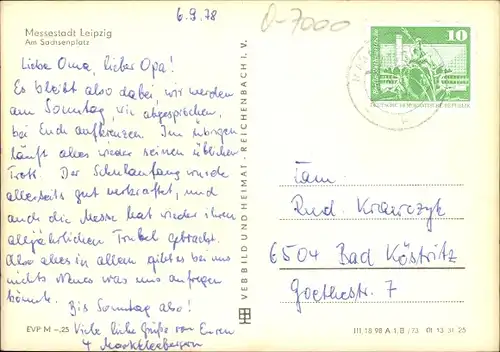 6.9.78
O-7000
Messestadt Leipzig
Am Sachsenplatz
10
DEUTSCHE DEMOKRATISCHE REPUBLIK
Liebe Oma, lieber Opa!
Es bleibt also dabei, wir werden
am Sonntag, wie abgesprochen,
bei Euch aufkreuzen. Im übrigen
läuft alles wieder seinen üblichen
Trott. Der Schulanfang wurde
allerseits gut verkraftet, und
auch die Messe hat wieder ihren
alljährlichen Trubel gebracht.
Also alles in allem gibt es bei uns
nichts Neues was uns aufregen
könnte.
Bis Sonntag also!
Viele liebe Grüße von Euren
4 Markkleebergern
VEB BILD UND HEIMAT · REICHENBACH I. V.
Fam.
Rud. Krawczyk
6504 Bad Köstritz
Goethestr. 7
EVP M –,25
III 18 98 A 1 B /73 01 13 31 25